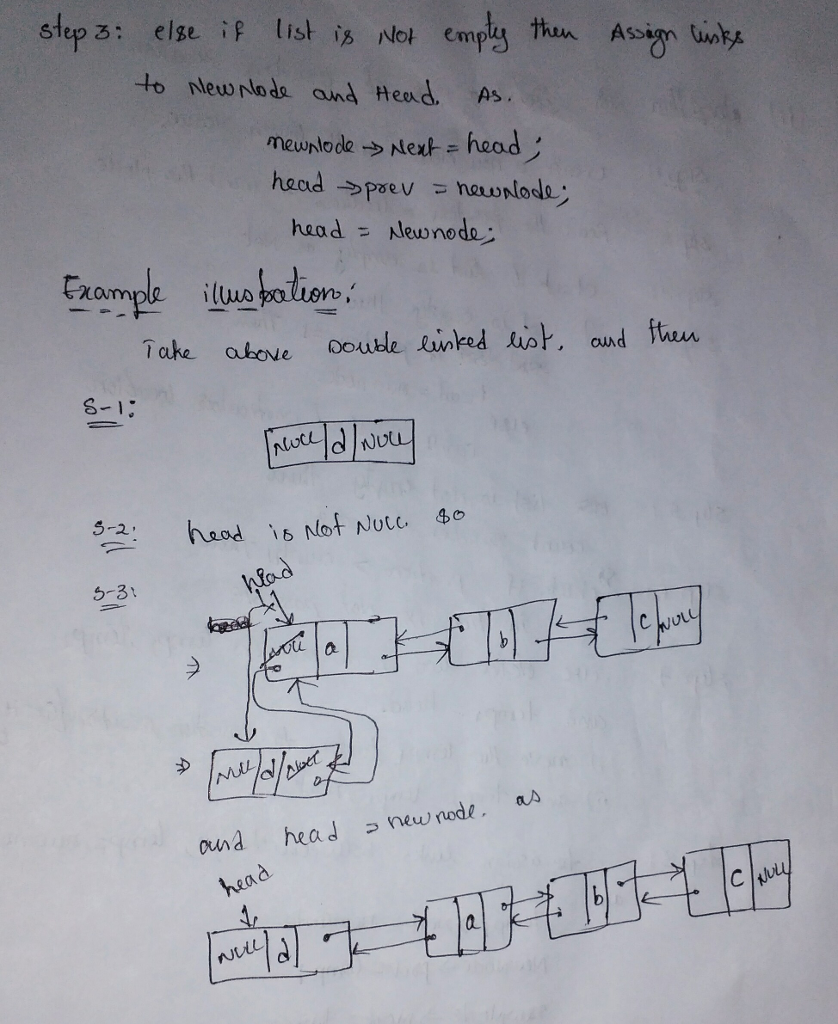 step 3: else if list is Not empty then Assign links
to NewNode and Head. As.
newNode → Next = head;
head → prev = newNode;
head = Newnode;
Example illustration:
Take above Double linked list, and then
S-1:
NULL d NULL
S-2: head is Not NULL so
S-3: head
head
NULL a b C NULL
⇒
⇒ NULL d NULL
and head = newnode. as
head
NULL d a b C NULL